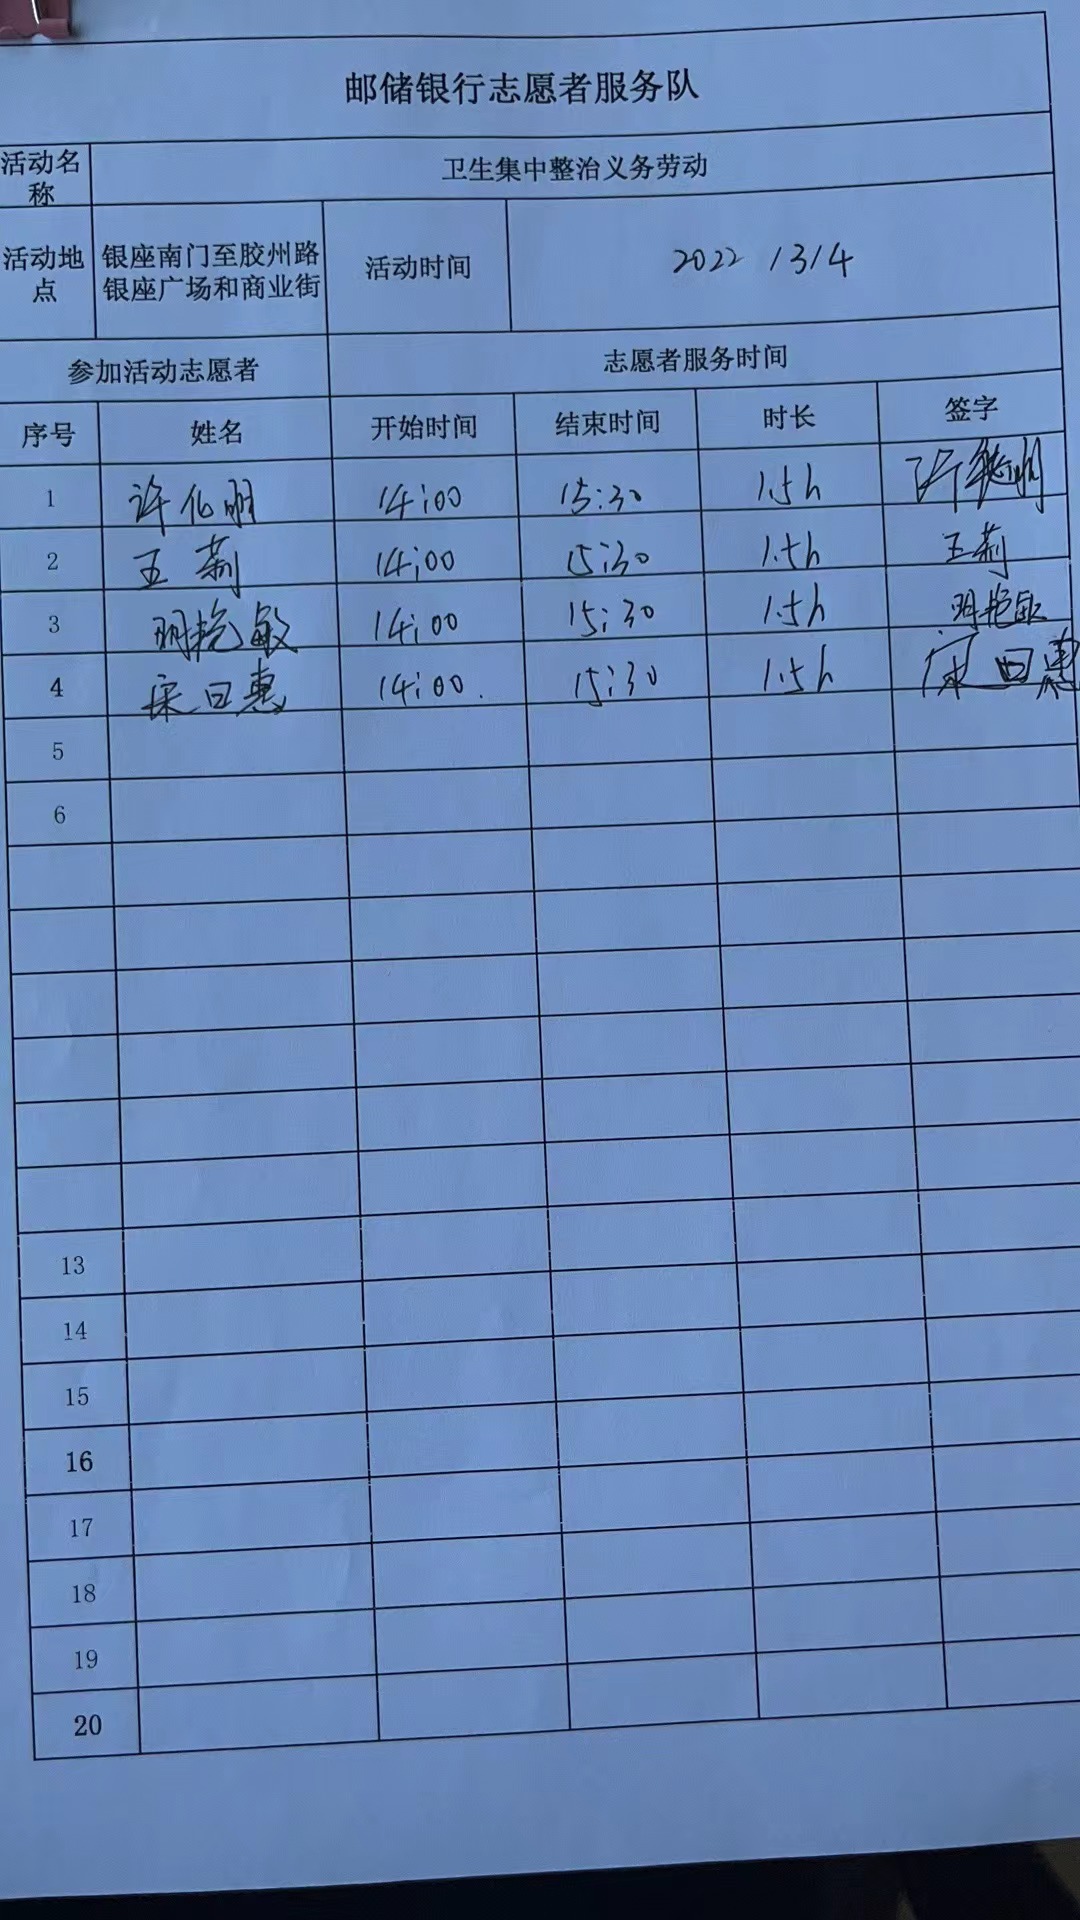 邮储银行志愿者服务队
活动名称 卫生集中整治义务劳动
活动地点 银座南门至胶州路银座广场和商业街 活动时间 2022 / 3 / 4
参加活动志愿者 志愿者服务时间
序号 姓名 开始时间 结束时间 时长 签字
1 许化明 14:00 15:30 1.5h
2 王莉 14:00 15:30 1.5h 王莉
3 明艳敏 14:00 15:30 1.5h 明艳敏
4 宋曰惠 14:00 15:30 1.5h 宋曰惠
5
6
13
14
15
16
17
18
19
20